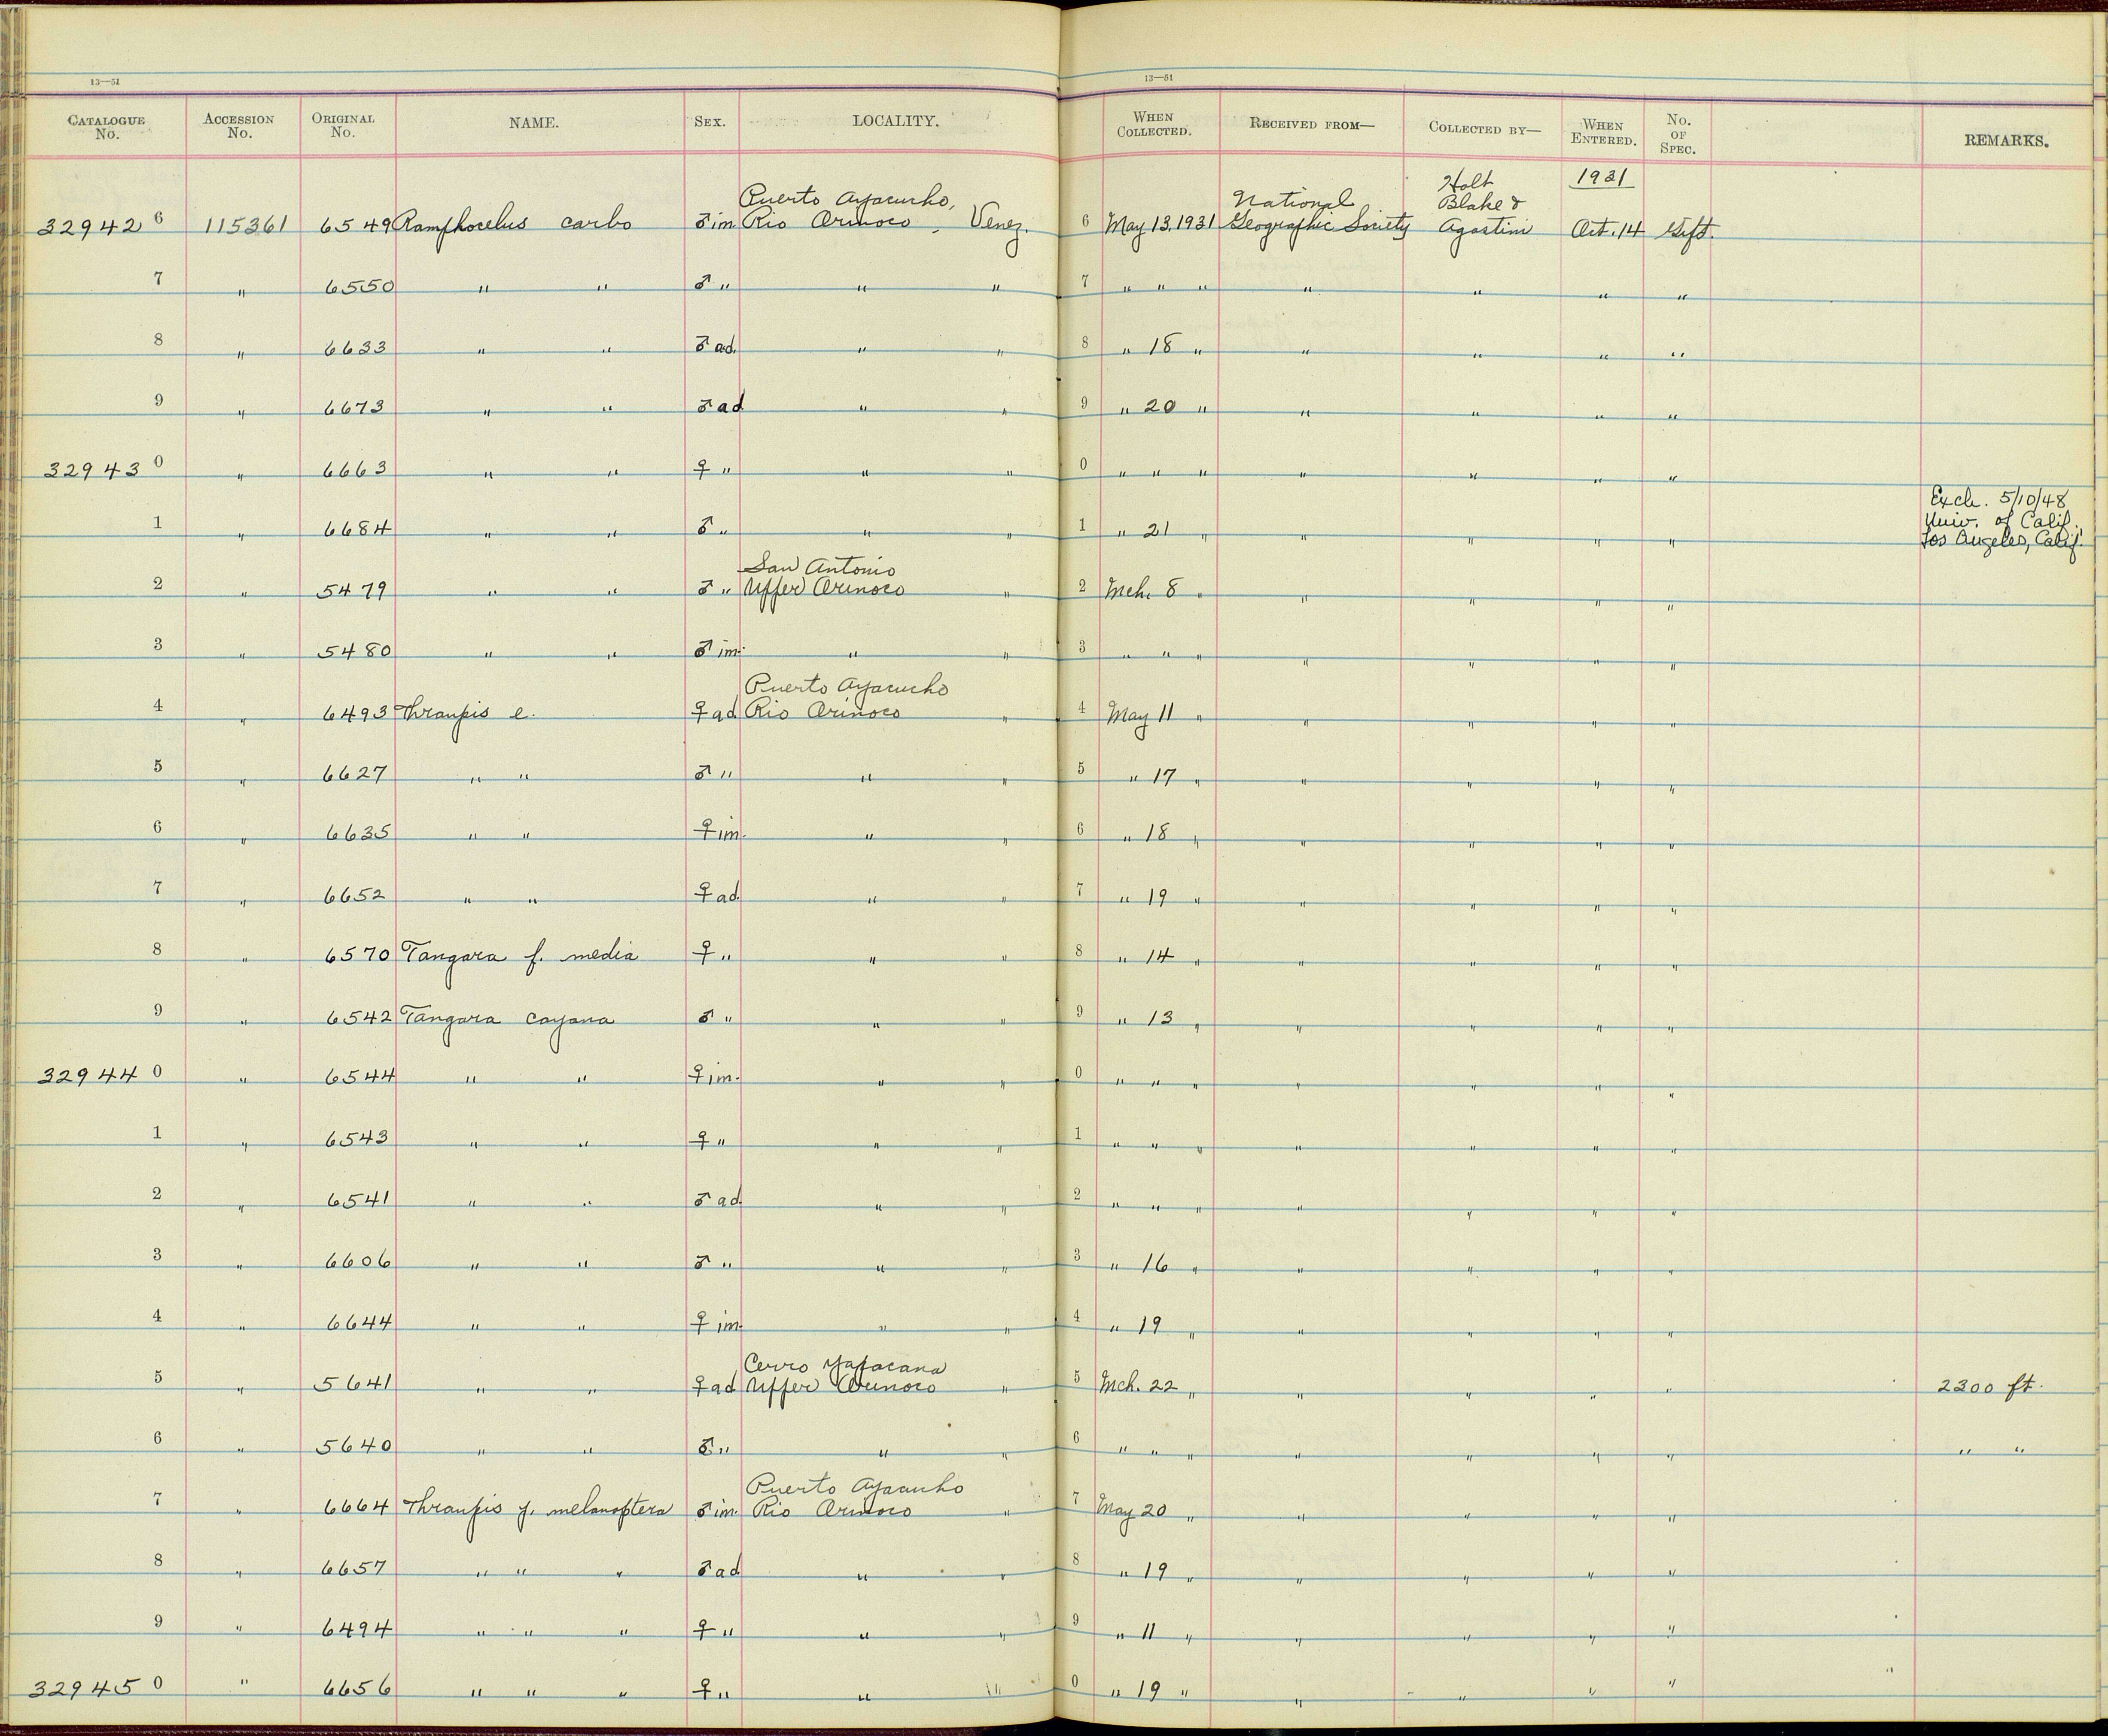 13—51 13—51
CATALOGUE No. ACCESSION No. ORIGINAL No. NAME. SEX. LOCALITY. WHEN COLLECTED. RECEIVED FROM— COLLECTED BY— WHEN ENTERED. No. OF SPEC. REMARKS.
Puerto Ayacucho, National Holt Blake & 1931
32942 6 115361 6549 Ramphocelus carbo ♂ im. Rio Orinoco, Venez. 6 May 13, 1931 Geographic Society Agostini Oct. 14 Gift.
7 " 6550 " " ♂ " " " 7 " " " " " " "
8 " 6633 " " ♂ ad. " " 8 " 18 " " " " "
9 " 6673 " " ♂ ad " " 9 " 20 " " " " "
32943 0 " 6663 " " ♀ " " " 0 " " " " " " "
Exch. 5/10/48
Univ. of Calif.
1 " 6684 " " ♂ " " " 1 " 21 " " " " " Los Angeles, Calif.
San Antonio
2 " 5479 " " ♂ " Upper Orinoco " 2 Mch. 8 " " " " "
3 " 5480 " " ♂ im. " " 3 " " " " " " "
Puerto Ayacucho
4 " 6493 Thraupis e. ♀ ad Rio Orinoco " 4 May 11 " " " " "
5 " 6627 " " ♂ " " " 5 " 17 " " " " "
6 " 6635 " " ♀ im. " " 6 " 18 " " " " "
7 " 6652 " " ♀ ad. " " 7 " 19 " " " " "
8 " 6570 Tangara f. media ♀ " " " 8 " 14 " " " " "
9 " 6542 Tangara cayana ♂ " " " 9 " 13 " " " " "
32944 0 " 6544 " " ♀ im. " " 0 " " " " " " "
1 " 6543 " " ♀ " " " 1 " " " " " " "
2 " 6541 " " ♂ ad. " " 2 " " " " " " "
3 " 6606 " " ♂ " " " 3 " 16 " " " " "
4 " 6644 " " ♀ im. " " 4 " 19 " " " " "
Cerro Yapacana
5 " 5641 " " ♀ ad Upper Orinoco " 5 Mch. 22 " " " " " 2300 ft.
6 " 5640 " " ♂ " " " 6 " " " " " " " " "
Puerto Ayacucho
7 " 6664 Thraupis p. melanoptera ♂ im. Rio Orinoco " 7 May 20 " " " " "
8 " 6657 " " " ♂ ad " " 8 " 19 " " " " "
9 " 6494 " " " ♀ " " " 9 " 11 " " " " "
32945 0 " 6656 " " " ♀ " " " 0 " 19 " " " " " "